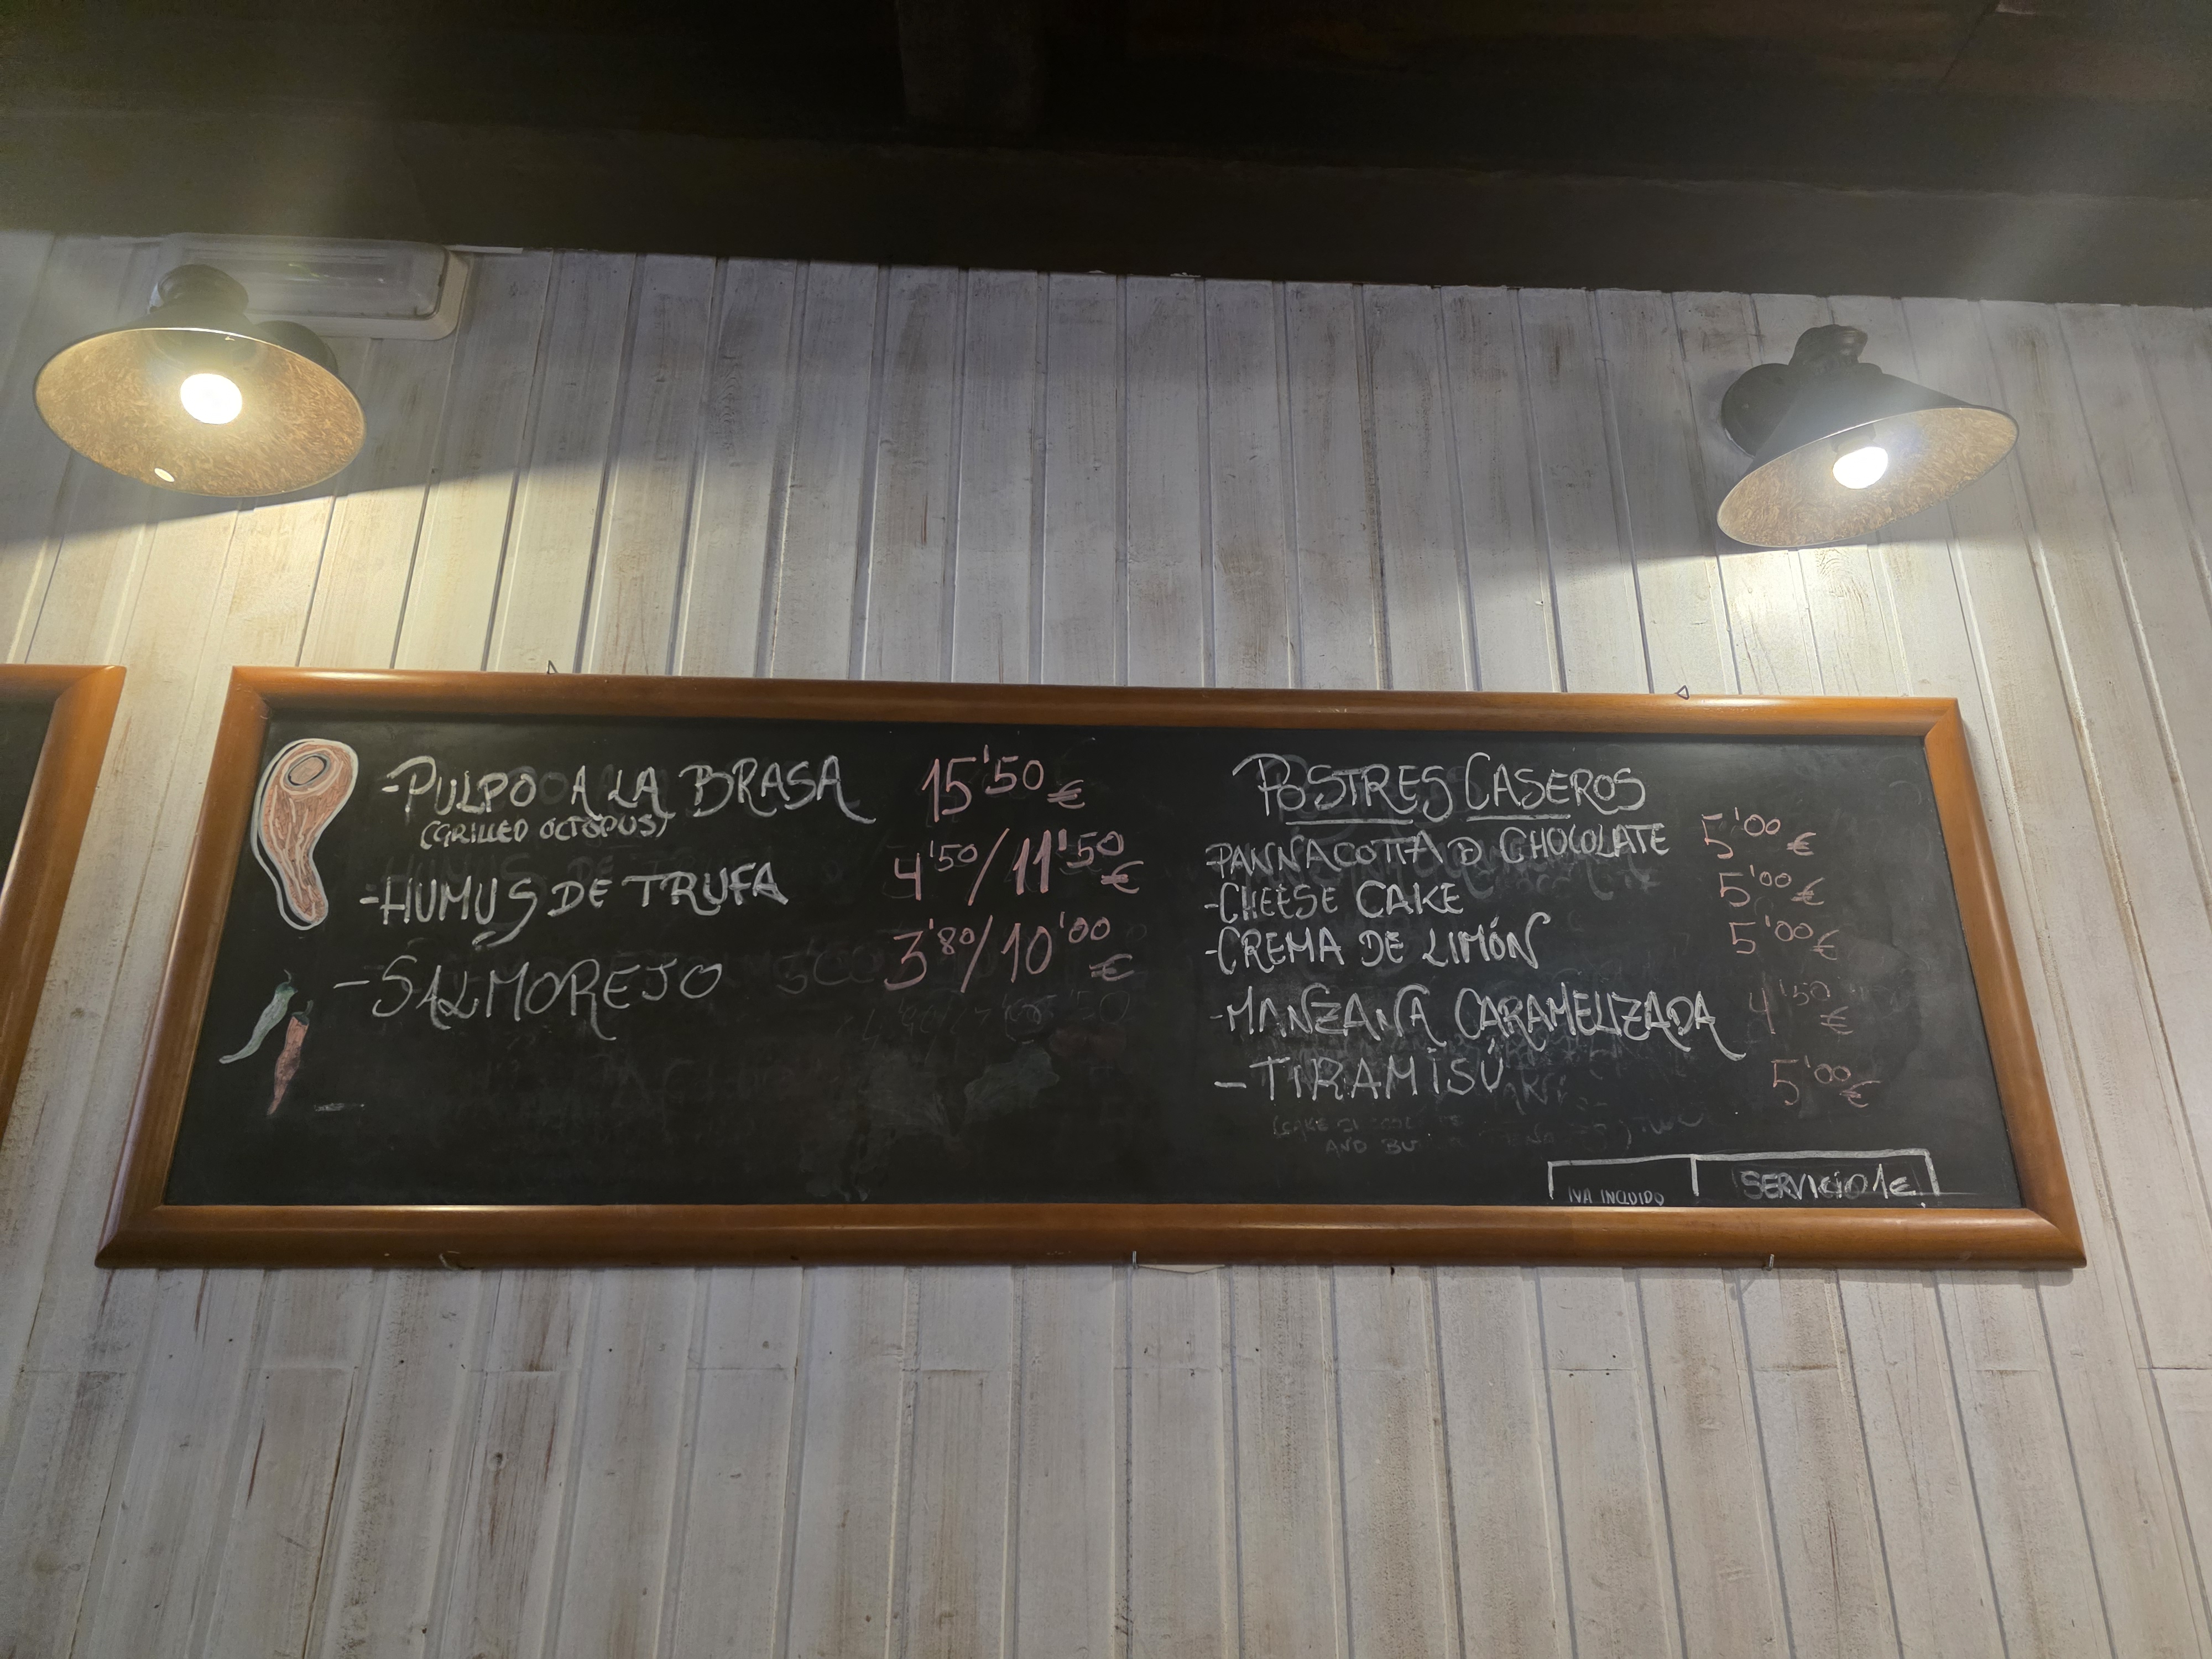 -PULPO A LA BRASA 15'50 €
(GRILLED OCTOPUS)
-HUMUS DE TRUFA 4'50/11'50 €
-SALMOREJO 3'80/10'00 €
POSTRES CASEROS
-PANNACOTTA D CHOCOLATE 5'00 €
-CHEESE CAKE 5'00 €
-CREMA DE LIMÓN 5'00 €
-MANZANA CARAMELIZADA 4'50 €
-TIRAMISÚ 5'00 €
AND
IVA INCLUIDO
SERVICIO 1€